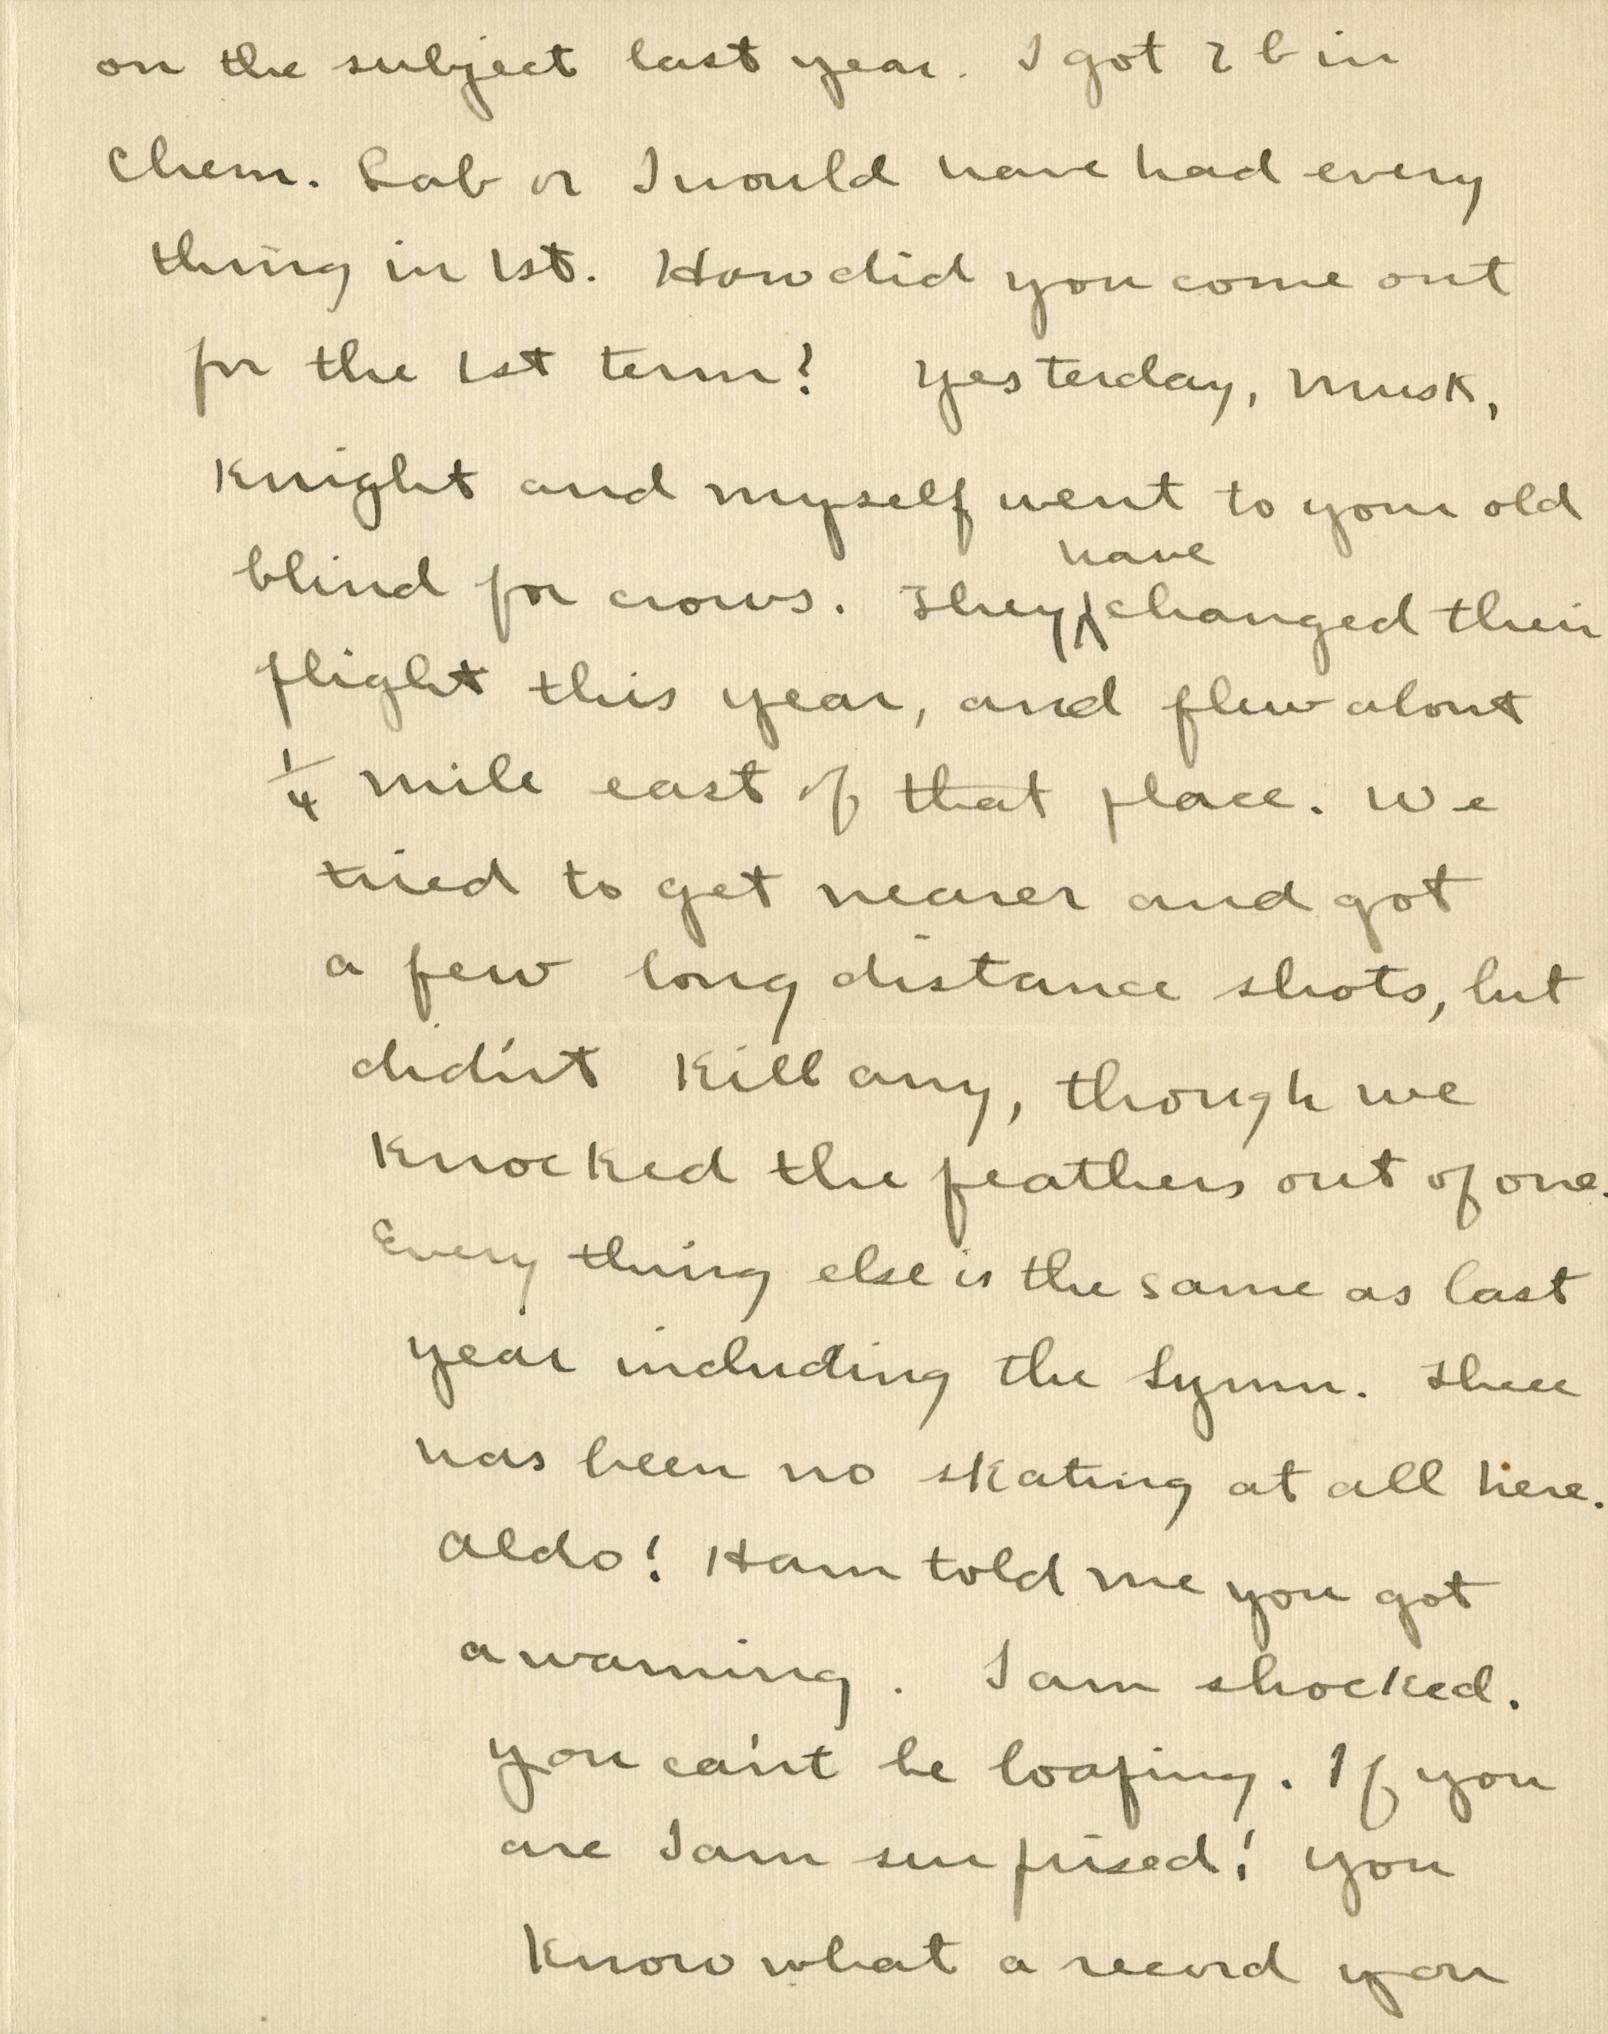 on the subject last year. I got 2 b in
Chem. Lab or I would have had every
thing in 1st. How did you come out
for the 1st term? Yesterday, Musk,
Knight and myself went to your old
blind for crows. They have changed their
flight this year, and flew about
1/4 mile east of that place. We
tried to get nearer and got
a few long distance shots, but
did'nt kill any, though we
knocked the feathers out of one.
Every thing else is the same as last
year including the Gymn. There
has been no skating at all here.
Aldo! Ham told me you got
a warning. I am shocked.
You ca'nt be loafing. If you
are I am surprised! You
know what a record you